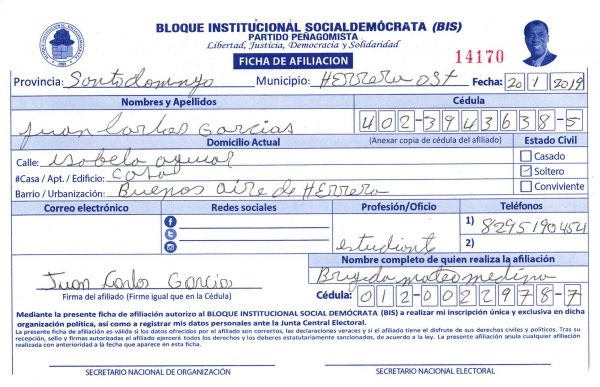 BLOQUE INSTITUCIONAL SOCIALDEMÓCRATA (BIS)
PARTIDO PEÑAGOMISTA
Libertad, Justicia, Democracia y Solidaridad
FICHA DE AFILIACION
14170
Provincia: Santo domingo Municipio: HErrera ost Fecha: 20 1 2019
Nombres y Apellidos Cédula
juan Carlos Garcias 402-3943638-5
Domicilio Actual (Anexar copia de cédula del afiliado) Estado Civil
Calle: isabela aguiar Casado
#Casa / Apt. / Edificio: casa Soltero
Barrio / Urbanización: Buenos aire de HErrera Conviviente
Correo electrónico Redes sociales Profesión/Oficio Teléfonos
1) 8295190454
estudiante 2)
Nombre completo de quien realiza la afiliación
Juan Carlos Garcias Brigida mateo medina
Firma del afiliado (Firme igual que en la Cédula) Cédula: 012-0022978-7
Mediante la presente ficha de afiliación autorizo al BLOQUE INSTITUCIONAL SOCIAL DEMÓCRATA (BIS) a realizar mi inscripción única y exclusiva en dicha
organización política, así como a registrar mis datos personales ante la Junta Central Electoral.
La presente ficha de afiliación es válida si los datos ofrecidos por el afiliado son correctos, las declaraciones veraces y si el afiliado tiene el disfrute de sus derechos civiles y políticos. Tras su
recepción, sello y firmas autorizadas el afiliado ejercerá todos los derechos y los deberes estatutariamente sancionados, de acuerdo a la ley. La presente afiliación anula cualquier afiliación
realizada con anterioridad a la fecha que aparece en esta ficha.
SECRETARIO NACIONAL DE ORGANIZACIÓN SECRETARIO NACIONAL ELECTORAL